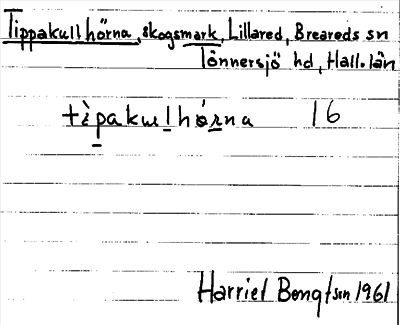 Tippakull hörna, skogsmark, Lillared, Breareds sn
Tönnersjö hd, Hall. län
tìpakulhórna 16
Harriet Bengtson 1961